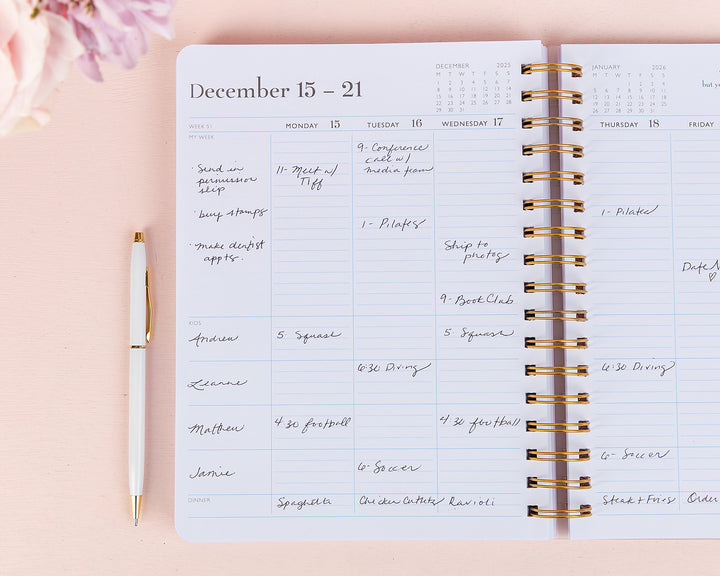 December 15 – 21
DECEMBER 2025
M T W T F S S
1 2 3 4 5 6 7
8 9 10 11 12 13 14
15 16 17 18 19 20 21
22 23 24 25 26 27 28
29 30 31
JANUARY 2026
M T W T F S S
1 2 3 4
5 6 7 8 9 10 11
12 13 14 15 16 17 18
19 20 21 22 23 24 25
26 27 28 29 30 31
WEEK 51
MONDAY 15
TUESDAY 16
WEDNESDAY 17
THURSDAY 18
FRIDAY
MY WEEK
· Send in
permission
slip
· buy stamps
· make dentist
appts.
11- Meet w/
Tiff
9- Conference
call w/
media team
1- Pilates
Ship to
photog
9- Book Club
1- Pilates
Date N
♡
KIDS
Andrew
5- Squash
5- Squash
Leanne
6:30 Diving
6:30 Diving
Matthew
4 30 football
4 30 football
Jamie
6- Soccer
6- Soccer
DINNER
Spaghetti
Chicken Cutlets
Ravioli
Steak + Fries
Order